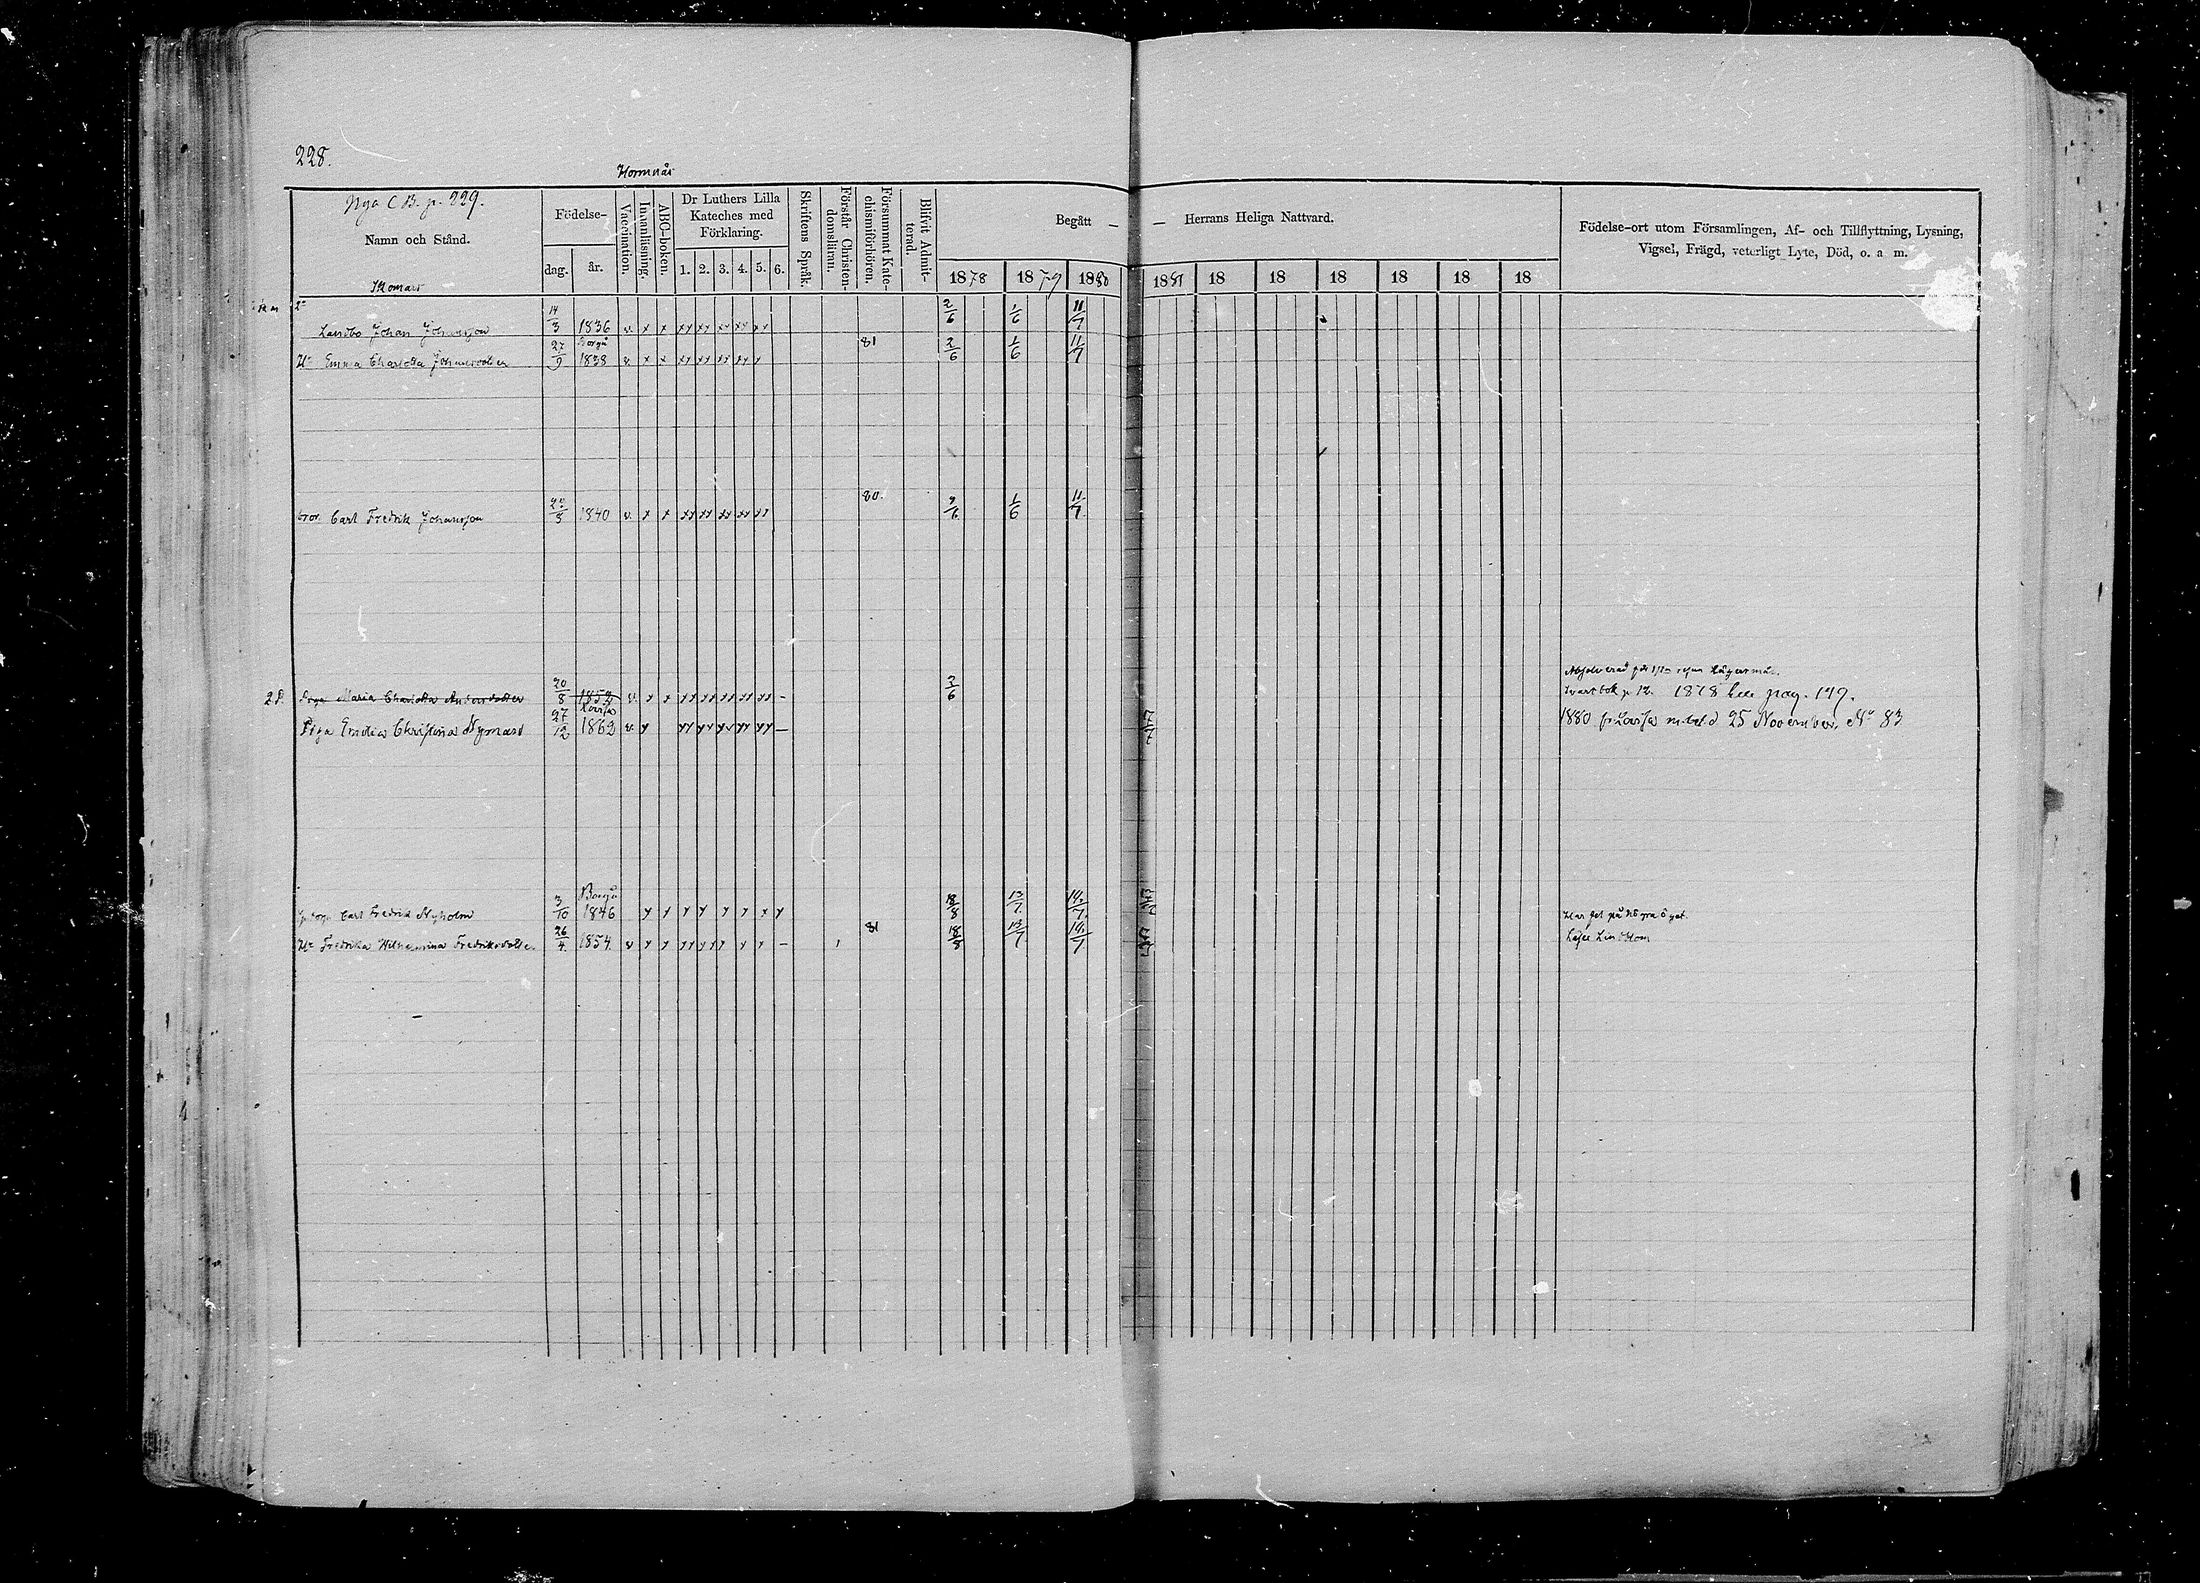 228.
Homnäs
Nya C B. p. 229.
Namn och Stånd.
Födelse-
dag. år.
Vaccination.
Innanläsning.
ABC-boken.
Dr Luthers Lilla Kateches med Förklaring.
1. 2. 3. 4. 5. 6.
Skriftens Språk.
Förstår Christendomsläran.
Försummat Katechismiförhören.
Blifvit Admitterad.
Begått — — Herrans Heliga Nattvard.
1878 1879 1880 1881 18 18 18 18 18 18
Födelse-ort utom Församlingen, Af- och Tillflyttning, Lysning,
Vigsel, Frägd, veterligt Lyte, Död, o. a m.
Landbo Johan Johansson 14/3 1836 v. x x xx xx xx xx xx 2/6 1/6 11/7
Borgå 81
Hu Emma Charlotta Johansdotter 27/9 1838 v. x x xx xx xx xx x 2/6 1/6 11/7
80.
bror Carl Fredrik Johansson 1840 v. x x xx xx xx xx xx 1/6 11/7
2 d. Piga Maria Charlotta Andersdotter 20/8 1852 v. x x xx xx xx xx xx – 2/6
1878 pag. 147.
Lovisa
Piga Emilia Christina Nyman 27/12 1862 v. x xx xx xx xx xx – 1880 fr Lovisa m. bet. d 25 November. No 83
Borgå
Carl Fredrik Nyholm 3/10 1846 x x x x x x x x 18/8 13/7 14/7 Har fel på högra ögat.
81
Hu Fredrika Wilhelmina Fredriksdotter 26/4 1854. v x x xx x x x x x – 18/8 13/7 14/7